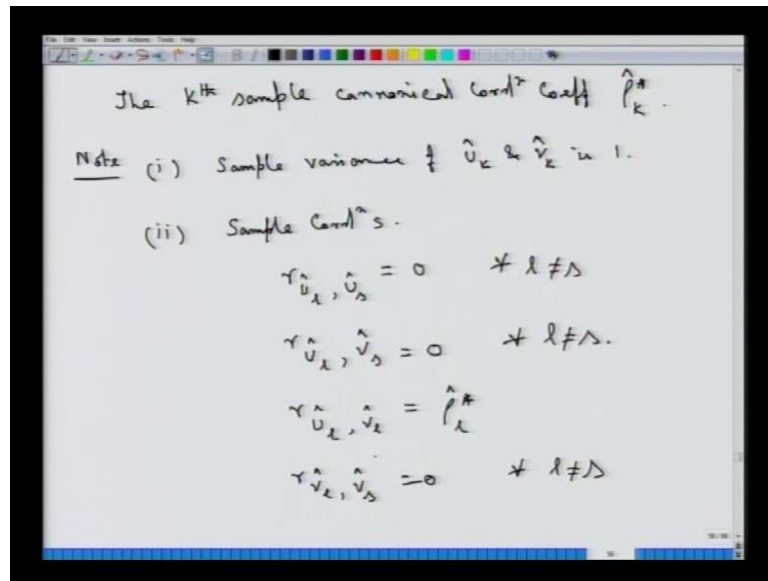 File Edit View Insert Actions Tools Help
The Kth sample cannonical Corrⁿ Coeff ρ̂*_K.
Note (i) Sample variance of Û_K & V̂_K is 1.
(ii) Sample Corrⁿs.
r_{Û_l, Û_s} = 0 ∀ l ≠ s
r_{Û_l, V̂_s} = 0 ∀ l ≠ s.
r_{Û_l, V̂_l} = ρ̂*_l
r_{V̂_l, V̂_s} = 0 ∀ l ≠ s